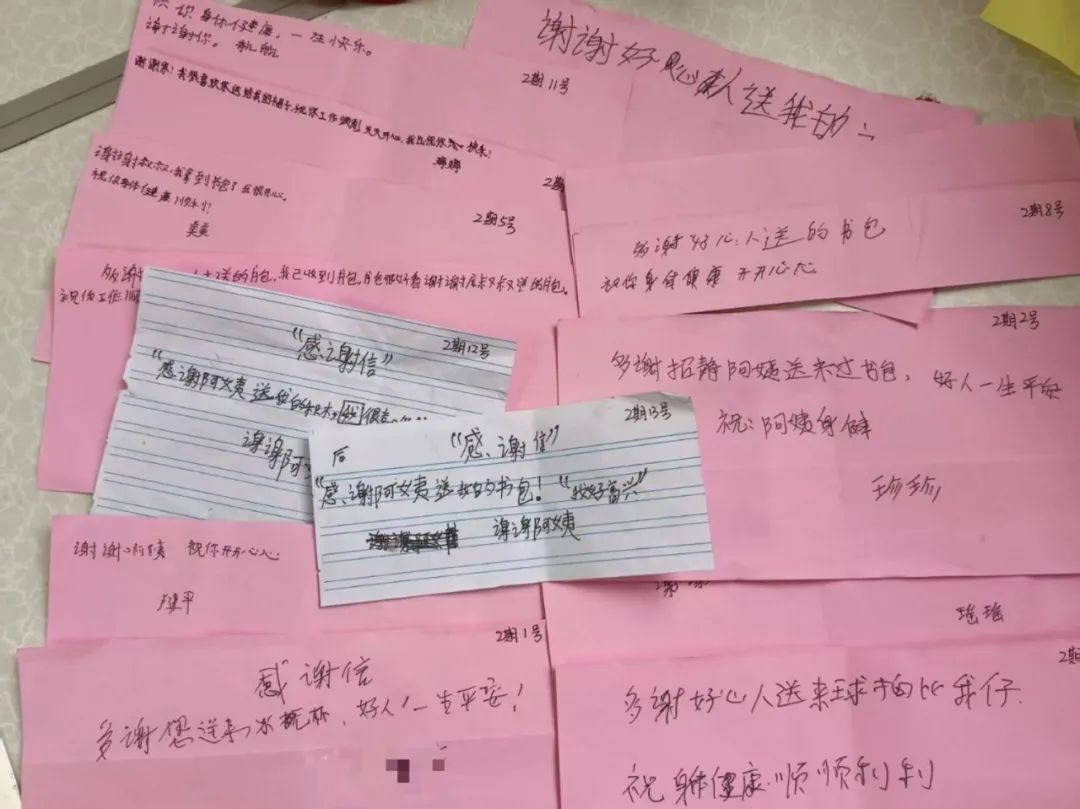 身体健康，一生快乐。
谢谢你。 航航
2期11号
谢谢您！我很喜欢您送给我的裙子，祝您工作顺利，天天开心，我也祝你永快乐！
婷婷
2期
谢谢叔叔，我拿到书包了我很开心。
祝你身体健康！顺利！
2期5号
多谢
送的书包，我己收到书包，书包很好看谢谢
叔叔送的书包。
祝你工作顺
谢谢好心人送我的：
2期8号
多谢好心人送的书包
祝你身体健康 开开心心
2期2号
多谢招静阿姨送来过书包，好人一生平安
祝：阿姨身体健
珍珍
2期12号
“感谢信”
“感谢阿姨送我的积木，我很喜
谢谢阿
2期13号
后
“感谢信”
“感谢阿姨送我的书包！“我好高兴”
谢谢阿姨
谢谢阿姨 祝你开开心心
卢建平
瑶瑶
2期1号
感谢信
多谢您送来水瓶杯，好人一生平安！
2期
多谢好心人送来球拍比我仔
祝身体健康顺顺利利